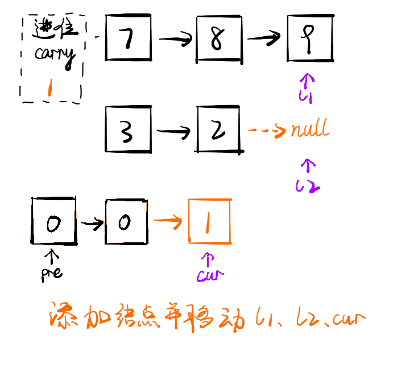 进位
carry
1
7 → 8 → 9
↑
L1
3 → 2 → null
↑
L2
0 → 0 → 1
↑ ↑
pre cur
添加结点并移动 L1、L2、cur